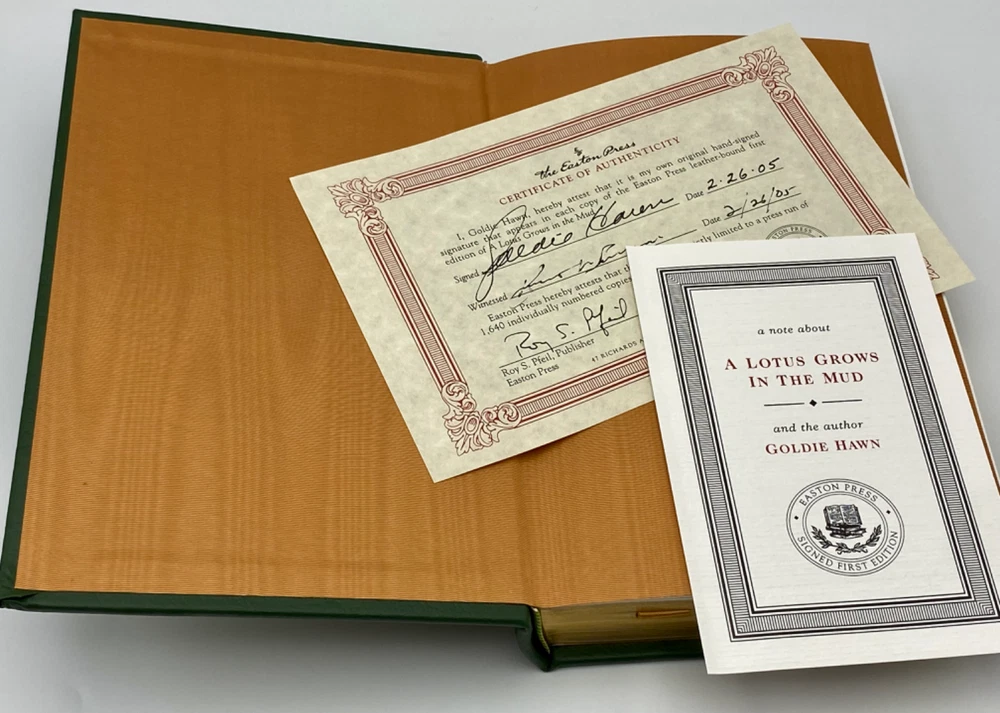 The Easton Press
CERTIFICATE OF AUTHENTICITY
I, Goldie Hawn, hereby attest that it is my own original hand-signed
signature that appears in each copy of the Easton Press leather-bound first
edition of A Lotus Grows in the Mud.
Signed Goldie Hawn Date 2·26·05
Witnessed Date 2/26/05
Easton Press hereby attests that th
tly limited to a press run of
1,640 individually numbered copies
Roy S. Pfeil
Roy S. Pfeil, Publisher
Easton Press
47 RICHARDS A
EASTON PRESS
a note about
A LOTUS GROWS
IN THE MUD
and the author
GOLDIE HAWN
EASTON PRESS
SIGNED FIRST EDITION